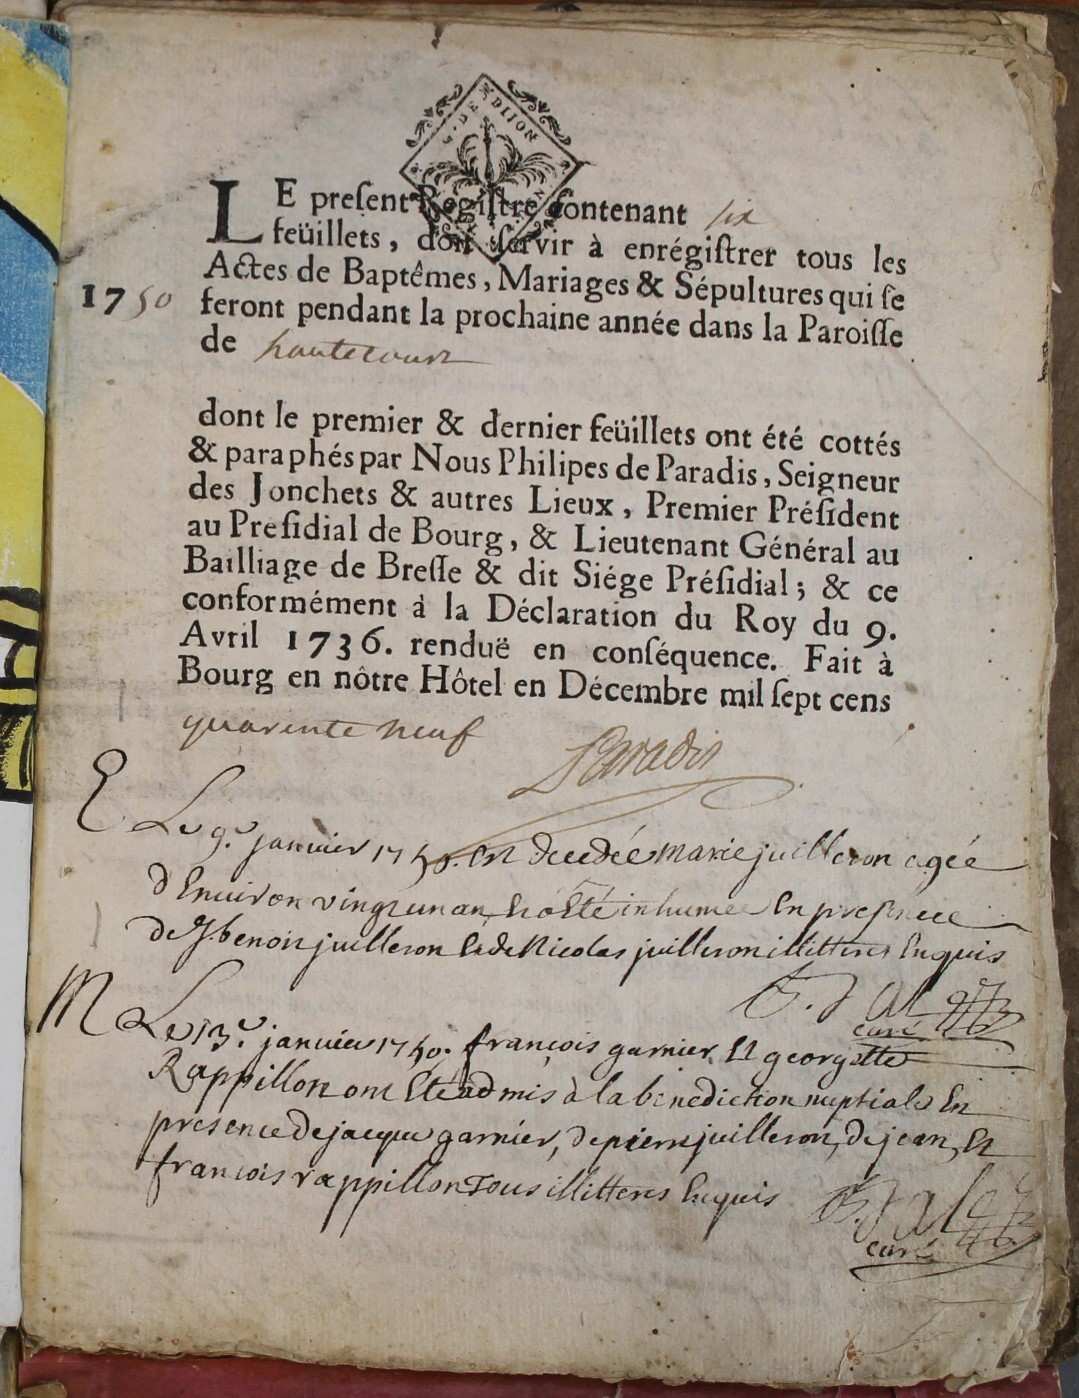 G. DE DIJON
LE preſent Regiſtre contenant six
feüillets, doit ſervir à enrégiſtrer tous les
Actes de Baptêmes, Mariages & Sépultures qui ſe
1750 feront pendant la prochaine année dans la Paroiſſe
de hautecourt
dont le premier & dernier feüillets ont été cottés
& paraphés par Nous Philipes de Paradis, Seigneur
des Jonchets & autres Lieux, Premier Préſident
au Preſidial de Bourg, & Lieutenant Général au
Bailliage de Breſſe & dit Siége Préſidial; & ce
conformément à la Déclaration du Roy du 9.
Avril 1736. renduë en conſéquence. Fait à
Bourg en nôtre Hôtel en Décembre mil ſept cens
quarente neuf
Paradis
E Le 9.e janvier 1750. est decedée marie juilleron agée
d'Environ vingt un an, Et a Eté inhumée En presence
de J. benoit juilleron Et de Nicolas juilleron illitteres Enquis
curé
M Le 13.e janvier 1750. françois garnier Et georgette
Rappillon ont Eté admis à la benediction nuptiale En
presence de jacque garnier, de pierre juilleron, de jean, Et
francois rappillon Tous illitteres Enquis
curé